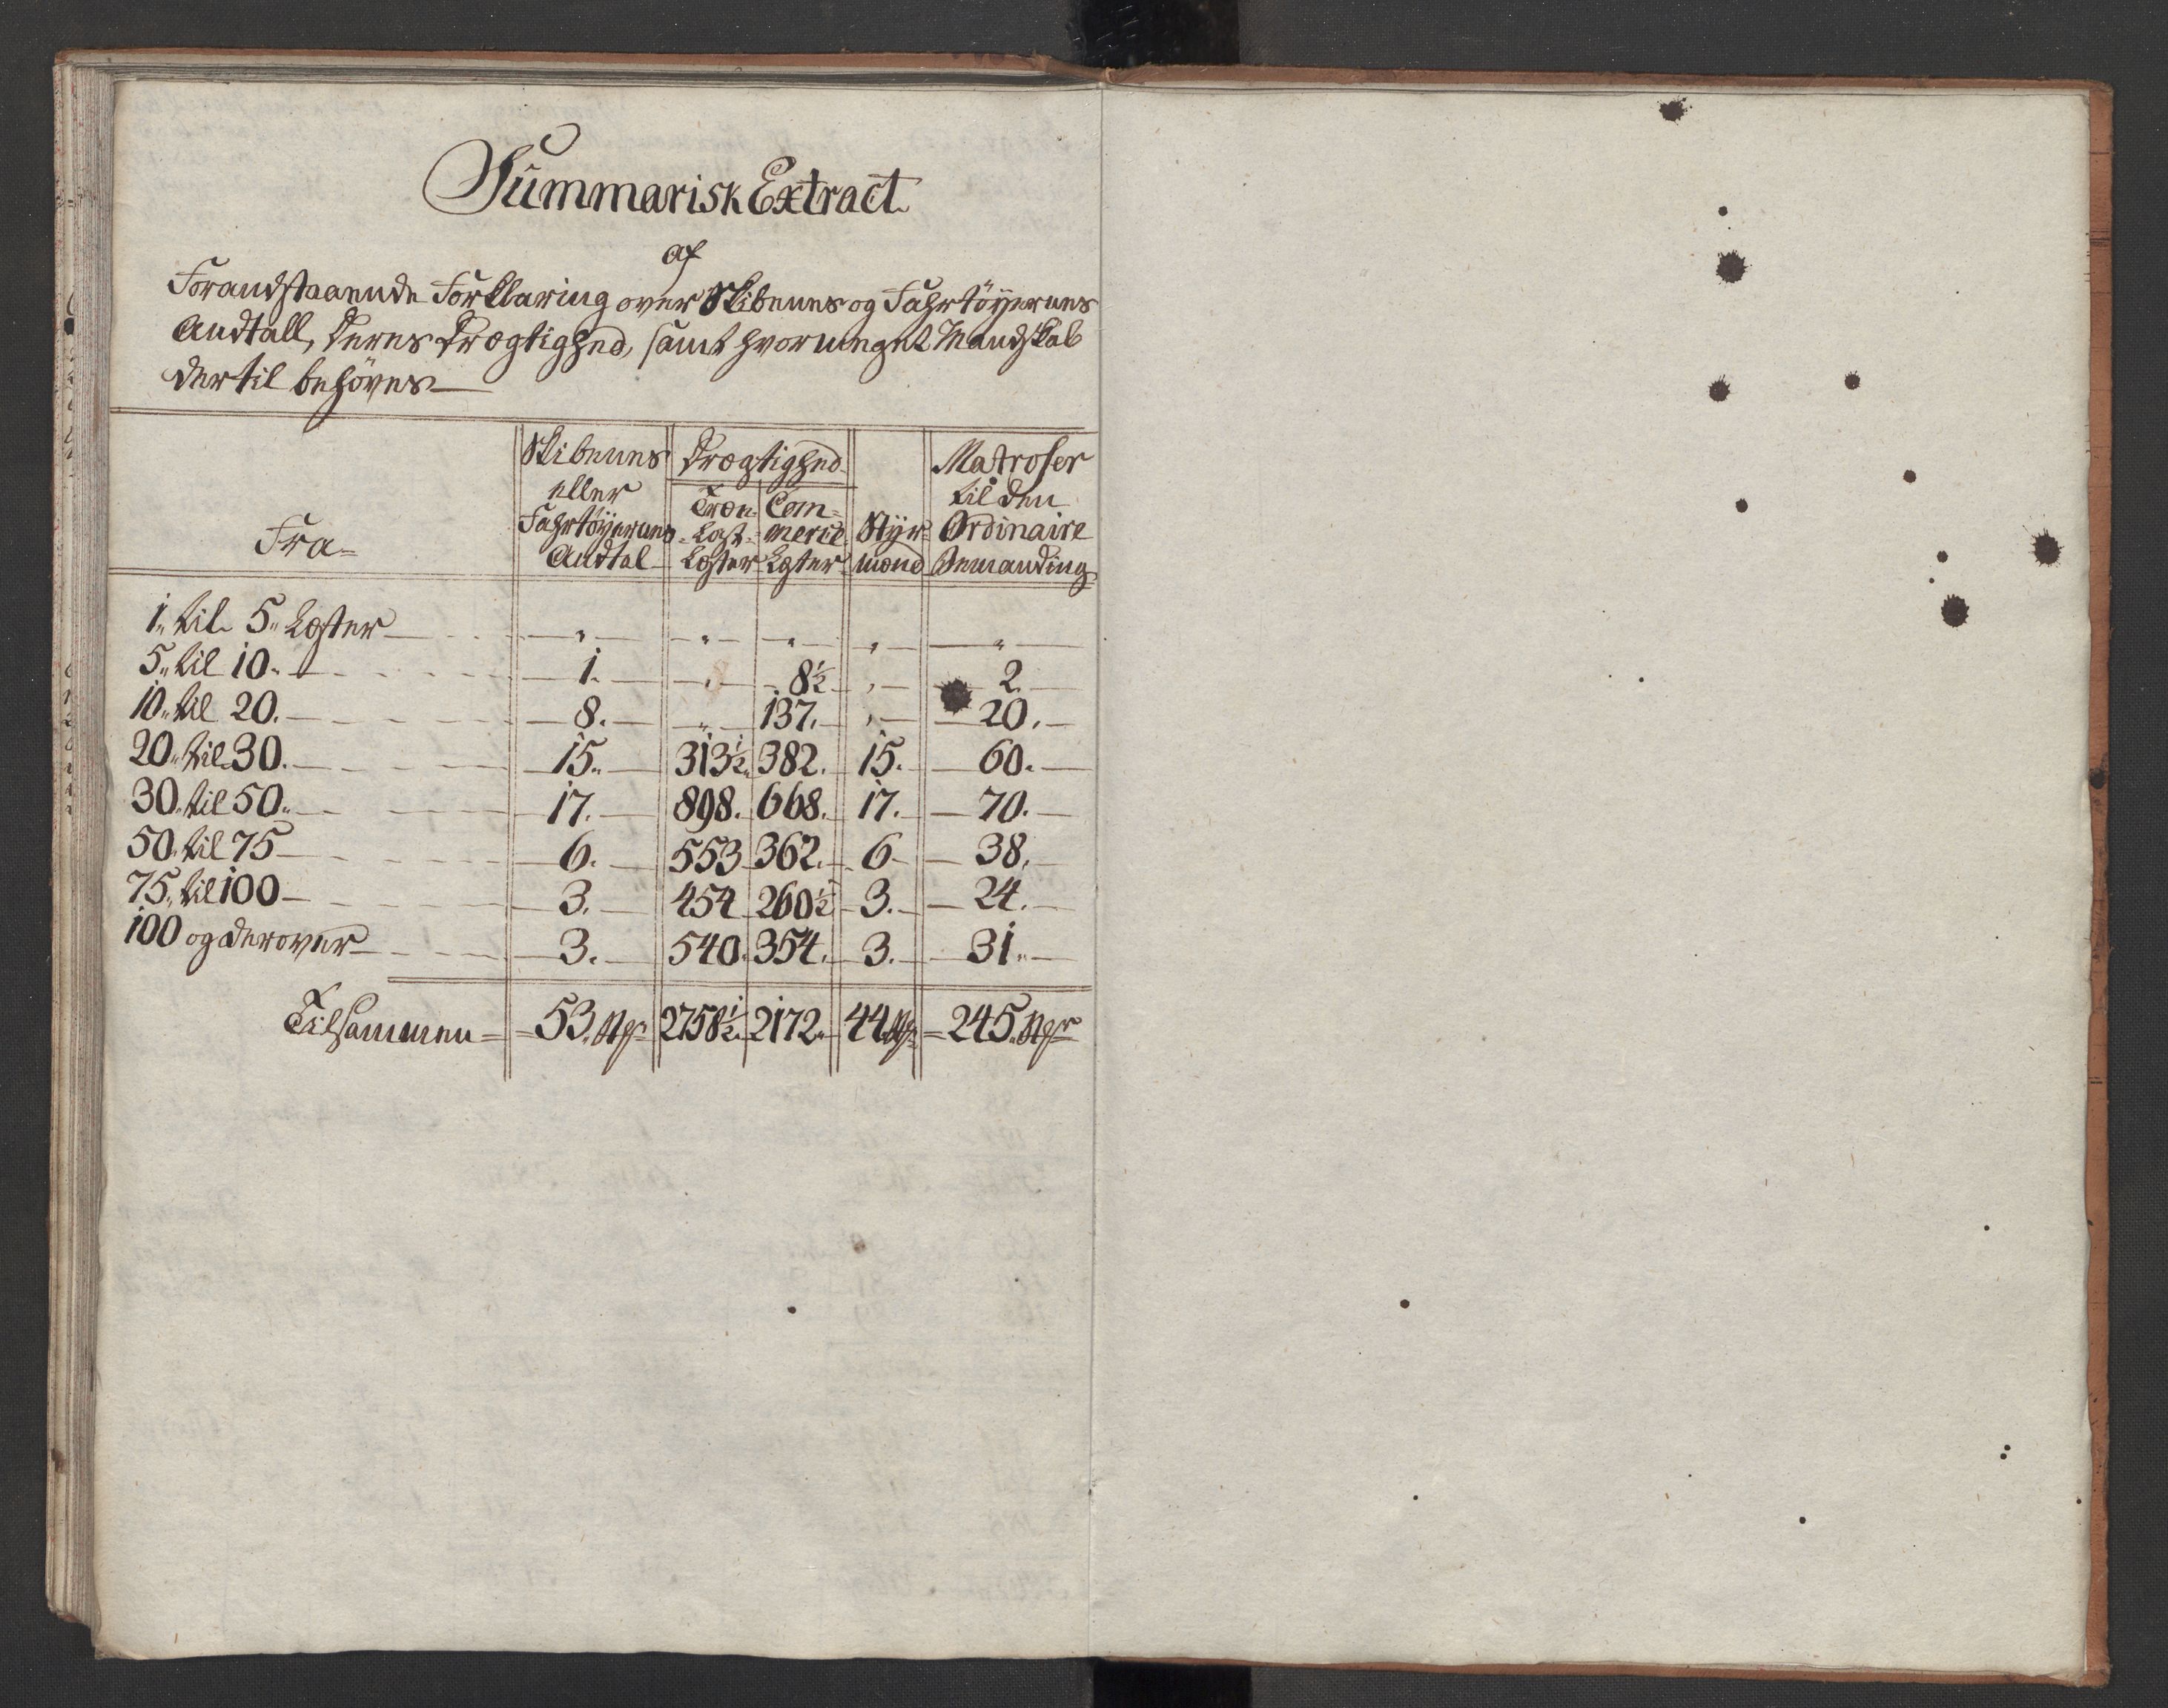 Summarisk Extract
af
Forandstaaende Forklaring over Skibenes og Fahrtöyernes
Andtall, deres Drægtighed, samt hvor meget Mandskab
der til behöves —
Fra | Skibenes eller Fahrtöyernes Andtal | Drægtighed: Træ-Last-Læster | Commerce-Læster | Styrmænd | Matroser til den Ordinaire Bemanding
1„ til 5„ Læster — „ — „ — „ — „ — „
5„ til 10. — 1. — „ — 8½ — „ — 2.
10„ til 20. — 8. — „ — 137. — „ — 20.
20„ til 30. — 15. — 313½ — 382. — 15. — 60.
30„ til 50. — 17. — 898. — 668. — 17. — 70.
50„ til 75 — 6. — 553 — 362. — 6 — 38.
75„ til 100 — 3. — 454 — 260½ — 3. — 24.
100 og derover — 3. — 540. — 354. — 3. — 31.
Tilsammen = 53. — 2758½ — 2172. — 44 — 245.